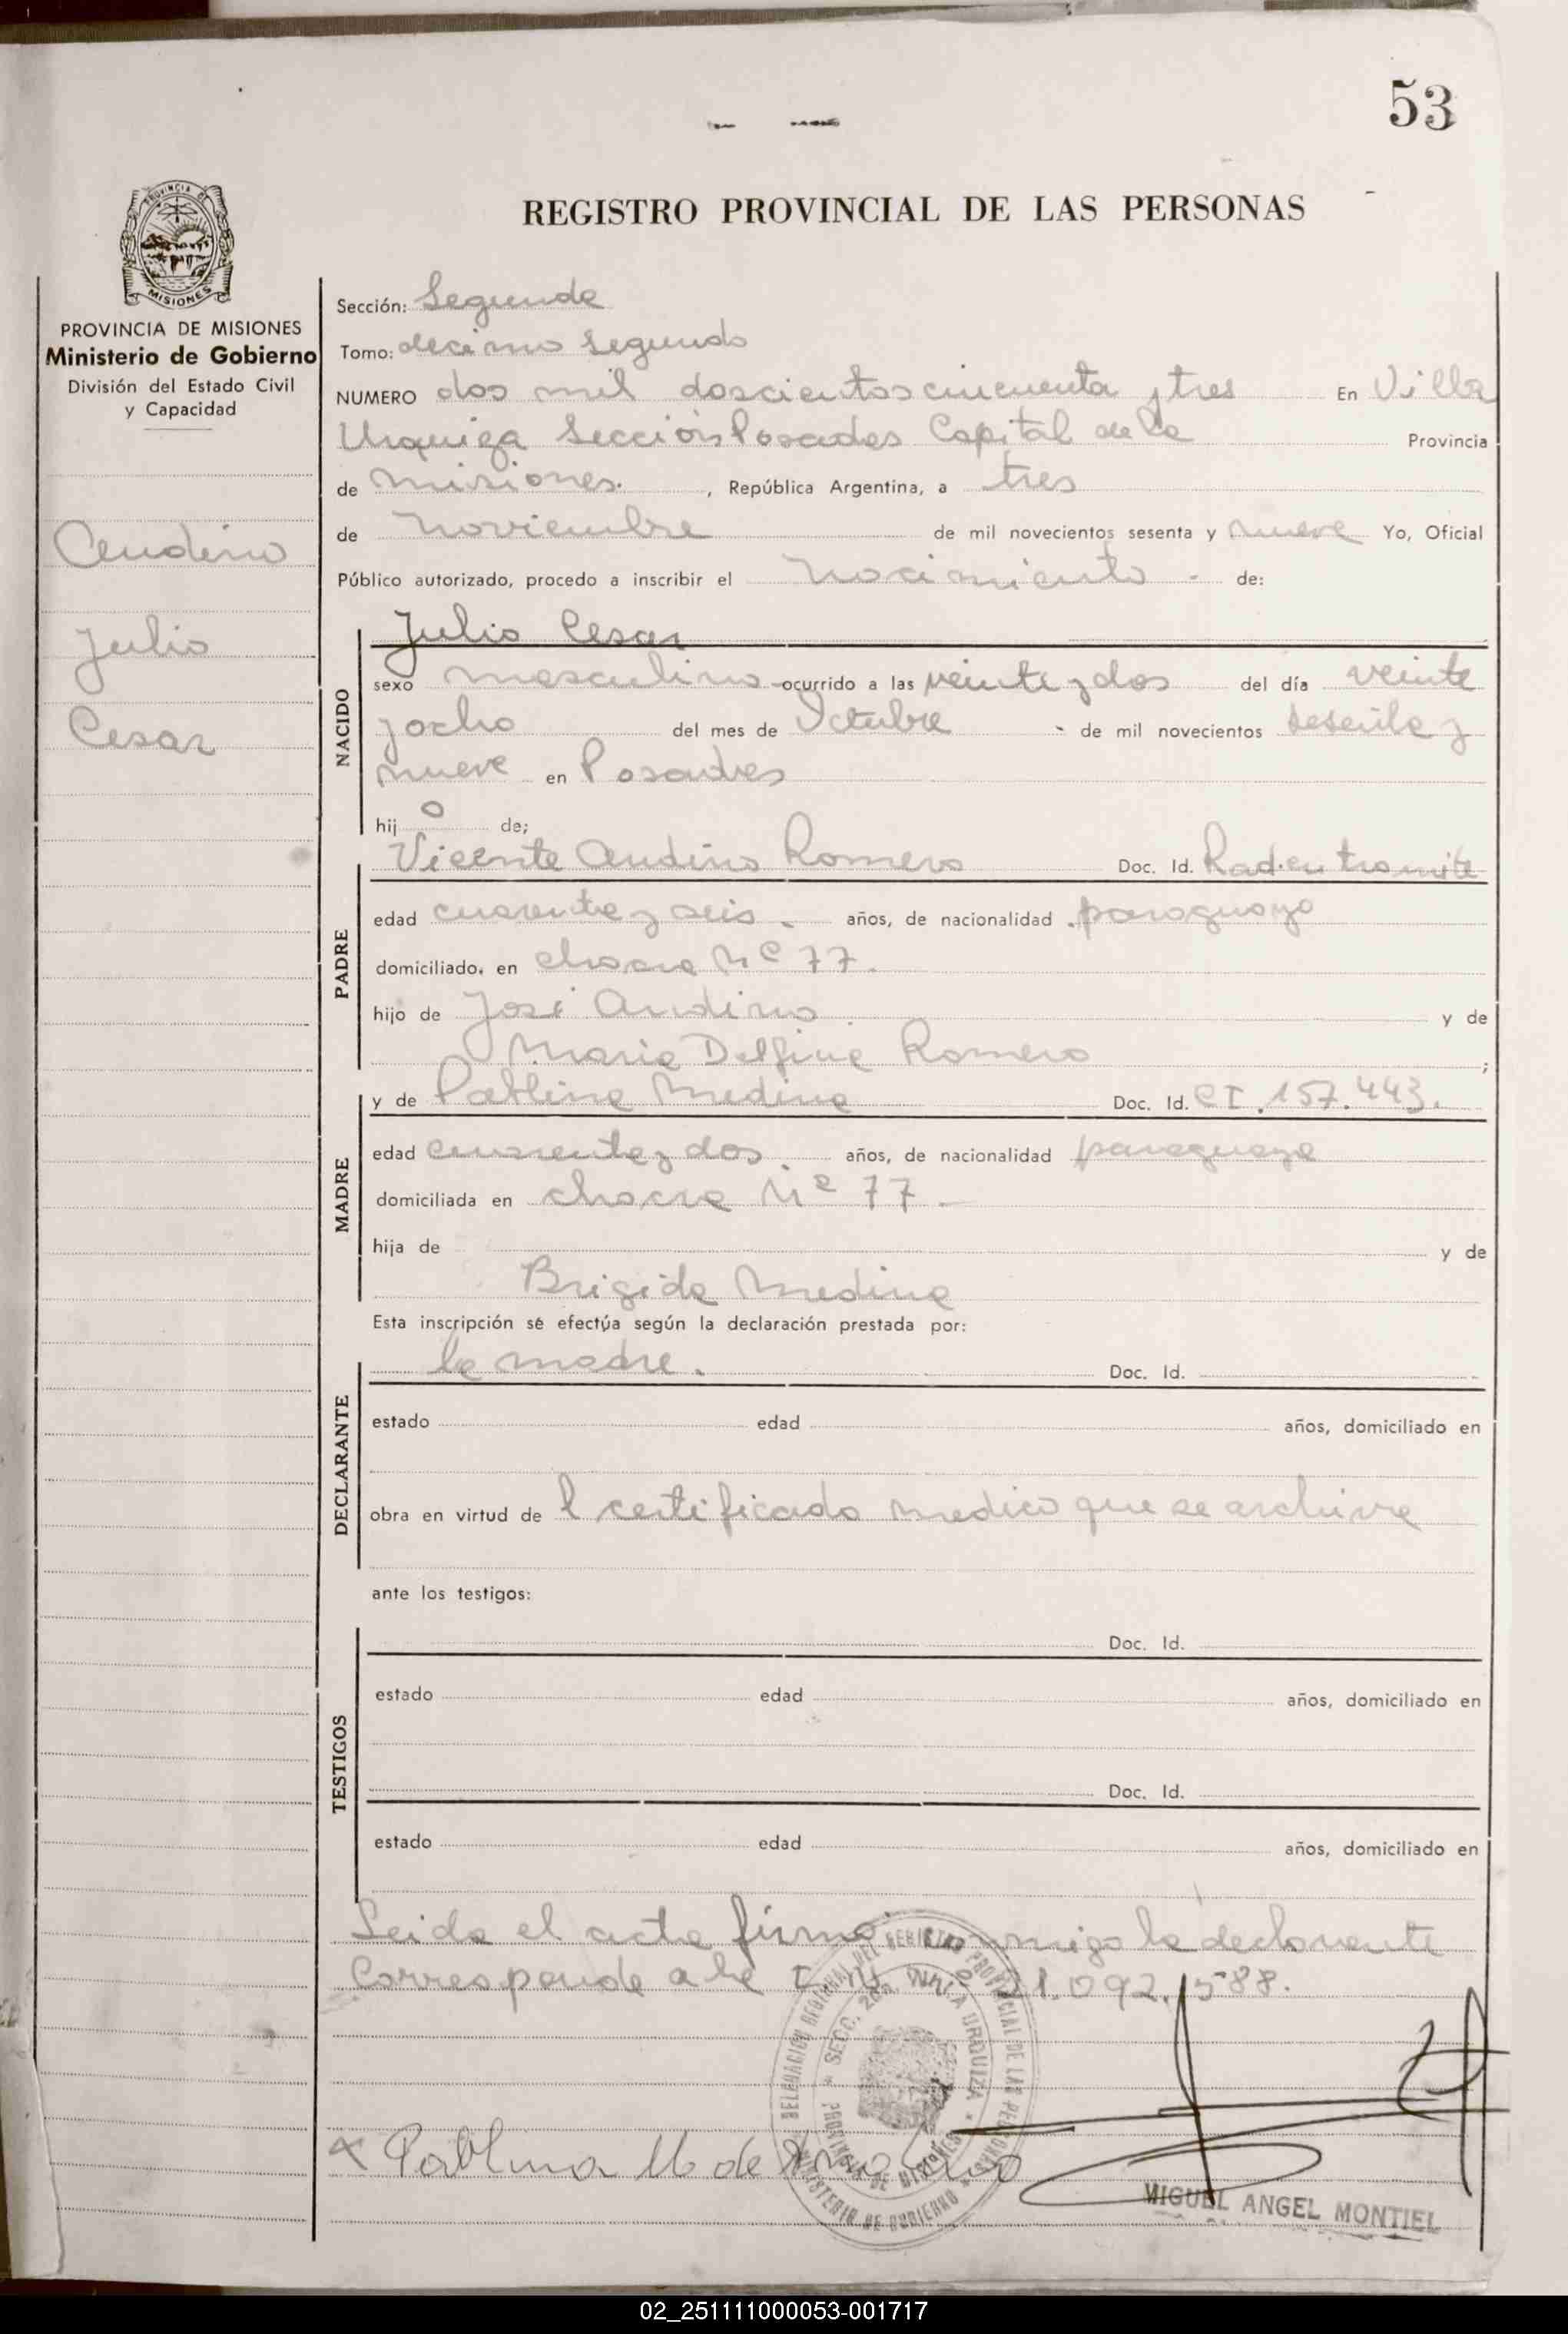 53
PROVINCIA DE
MISIONES
REGISTRO PROVINCIAL DE LAS PERSONAS
PROVINCIA DE MISIONES
Ministerio de Gobierno
División del Estado Civil
y Capacidad
Andino
Julio
Cesar
Sección: Segunda
Tomo: decimo segundo
NUMERO dos mil doscientos cincuenta y tres En Villa
Urquiza Sección Posadas Capital de la Provincia
de Misiones. , República Argentina, a tres
de Noviembre de mil novecientos sesenta y nueve Yo, Oficial
Público autorizado, procedo a inscribir el nacimiento - de:
NACIDO
Julio Cesar
sexo masculino ocurrido a las veinte y dos del día veinte
y ocho del mes de Octubre - de mil novecientos sesenta y
nueve en Posadas
hij o de;
PADRE
Vicente Andino Romero Doc. Id. Rad. en tramite
edad cuarenta y seis - años, de nacionalidad paraguayo
domiciliado. en chacra Nº 77.
hijo de José Andino y de
Maria Delfina Romero ;
MADRE
y de Pablina Medina Doc. Id. CI. 157.443.
edad cuarenta y dos. años, de nacionalidad paraguaya
domiciliada en chacra Nº 77 -
hija de y de
Brigida Medina
Esta inscripción se efectúa según la declaración prestada por:
DECLARANTE
la madre. Doc. Id.
estado edad años, domiciliado en
obra en virtud de l certificado medico que se archiva
ante los testigos:
TESTIGOS
Doc. Id.
estado edad años, domiciliado en
Doc. Id.
estado edad años, domiciliado en
Leida el acta firma conmigo la declarante
Corresponde a la 21.092.588.
DELEGACION REGIONAL DEL REGISTRO PROVINCIAL DE LAS PERSONAS
MINISTERIO DE GOBIERNO
SECC. 2da. VILLA URQUIZA
PROVINCIA DE MISIONES
x Pablina M de Andino
MIGUEL ANGEL MONTIEL
02_251111000053-001717